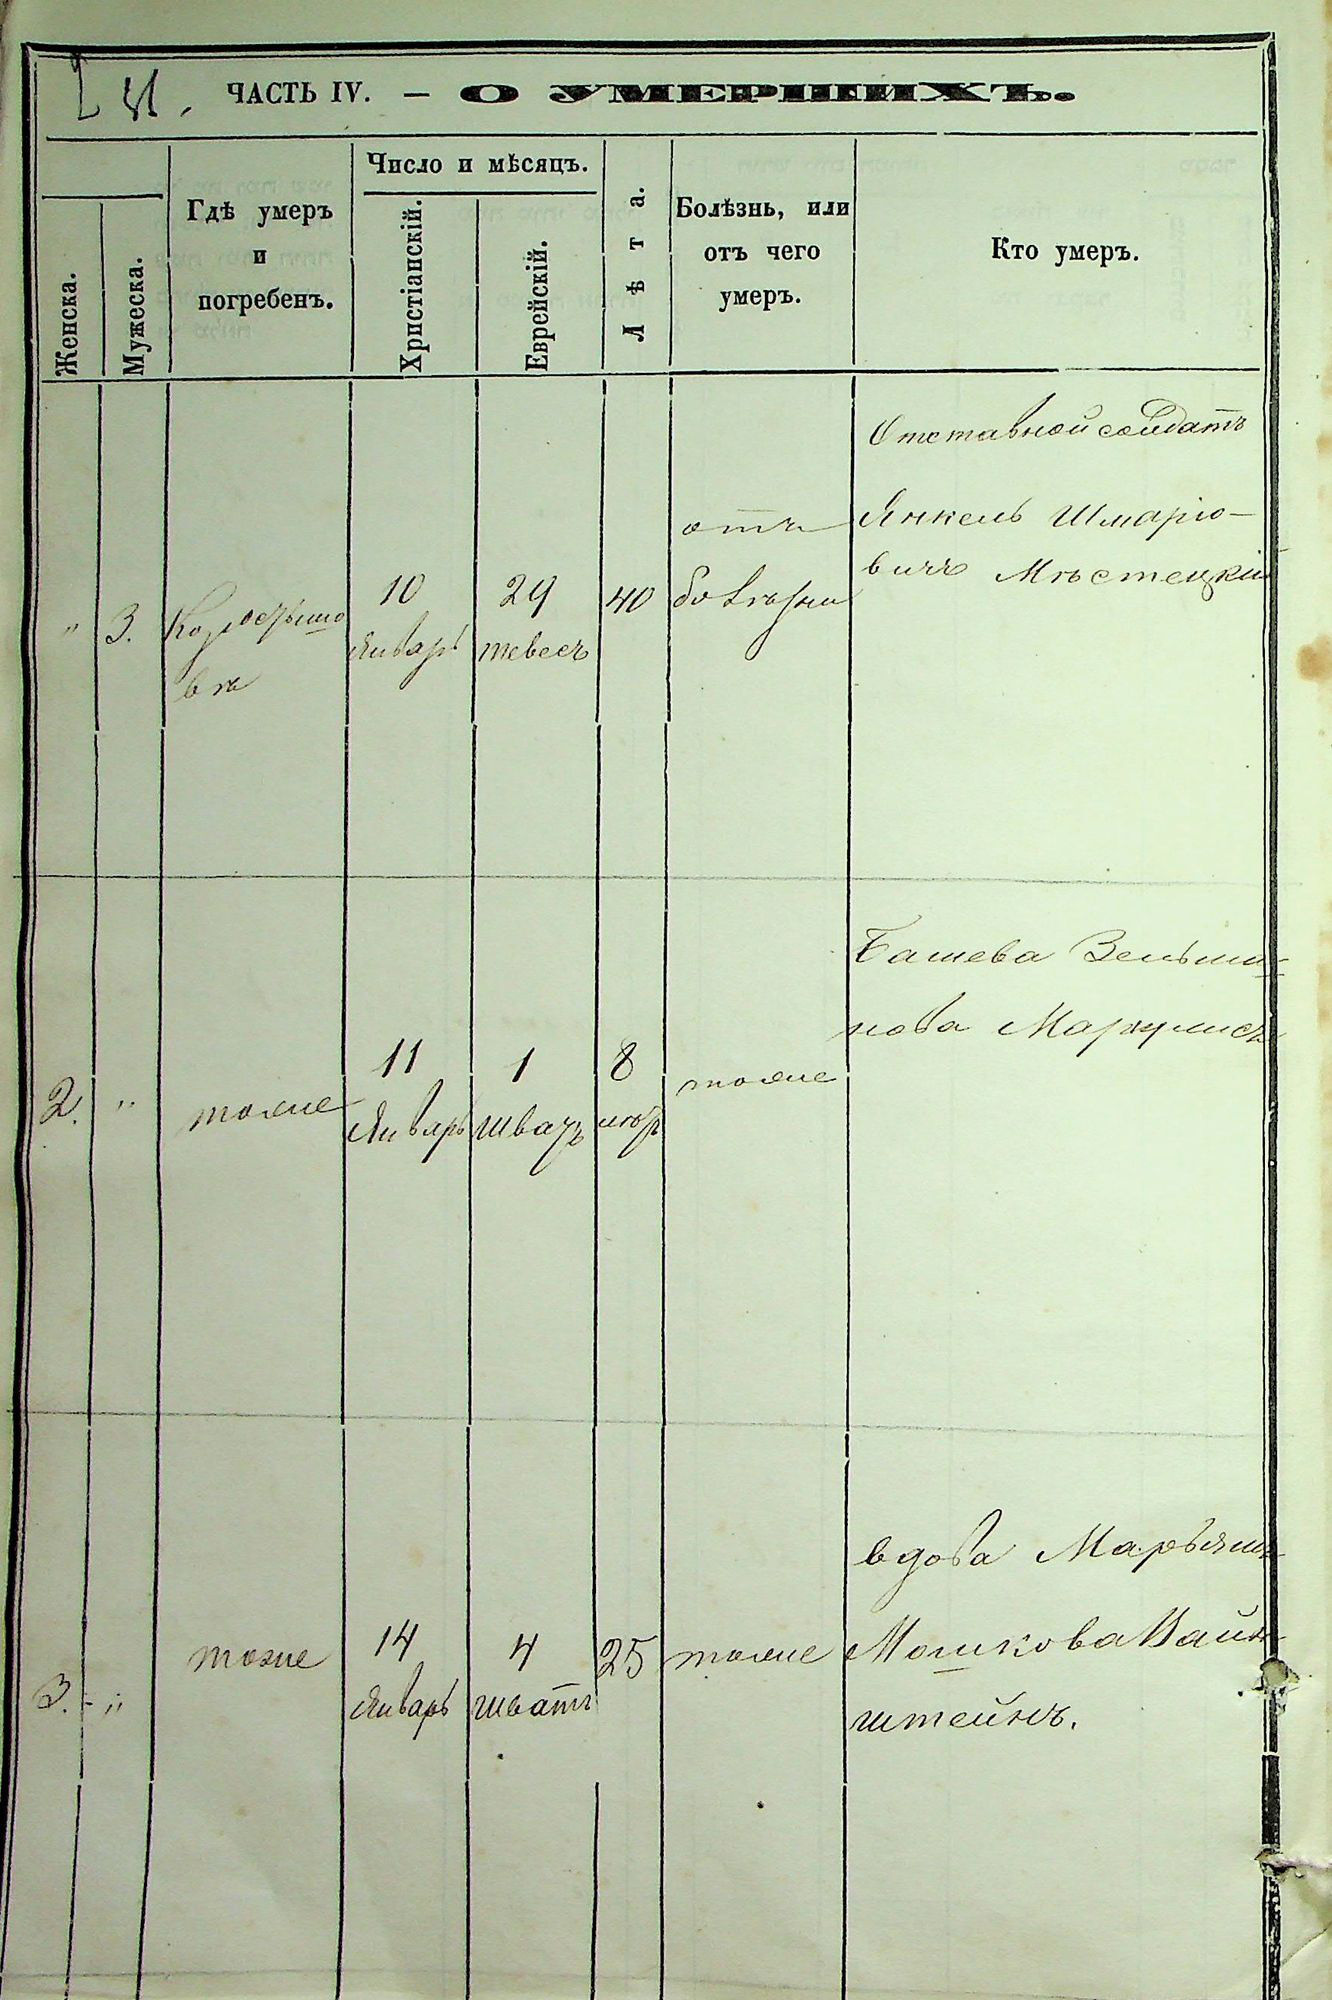 ЧАСТЬ IV. — О УМЕРШИХЪ.
Женска.
Мужеска.
Гдѣ умеръ
и
погребенъ.
Число и мѣсяцъ.
Христіанскій.
Еврейскій.
Лѣта.
Болѣзнь, или
отъ чего
умеръ.
Кто умеръ.
"
3.
Коростышо
вѣ
10
январь
29
тевесъ
40
отъ
болѣзни
Отставной солдатъ
Янкель Шмаріо-
вичъ Мѣстецкій
2.
"
тоже
11
Январь
1
шватъ
8
тоже
Башева Зельма-
нова
3.
"
тоже
14
Январь
4
шватъ
25
тоже
вдова Марьям
Мошкова Вайн-
штейнъ.